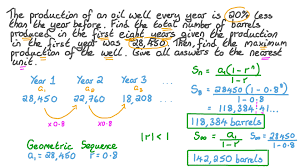 The production of an oil well every year is 20% less
than the year before. Find the total number of barrels
produced in the first eight years given the production
in the first year was 28,450. Then, find the maximum
production of the well. Give all answers to the nearest
unit.
Year 1 Year 2 Year 3
a₁ a₂ a₃
28,450 22,760 18,208 ...
x0.8 x0.8
Geometric Sequence
a₁ = 28,450 r = 0.8
|r| < 1
Sₙ = a₁(1-rⁿ)
1-r
S₈ = 28450(1-0.8⁸)
1-0.8
= 118,384.41...
118,384 barrels
S∞ = a₁
1-r
S∞ = 28450
1-0.8
142,250 barrels